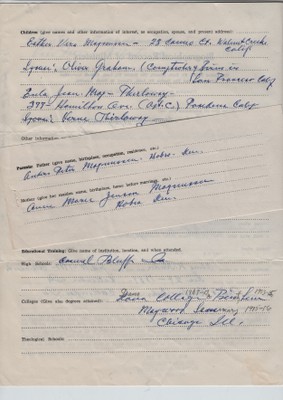 Children (give names and other information of interest, as occupation, spouse, and present address):
Esther Vera Magnussen - 28 Cameo Ct. Walnut Creek
Calif
Spouse: Oliver Graham. (Comptroller firm in
San Francisco Calif
Eula Jean Mag- Thorloway-
397 Hamilton Ave (Apt. C.) Pomona Calif
Spouse: Verne Thorloway-
Other information
Parents: Father (give name, birthplace, occupation, residence, etc.)
Anders Peter Magnussen Hobro. Den.
Mother (give her maiden name, birthplace, name before marriage, etc.)
Anna Marie Jensen Magnussen
Hobro Den.
Educational Training. Give name of institution, location, and when attended.
High Schools: Council Bluffs
Colleges (Give also degrees obtained):
Dana College Blair
Maywood Seminary
Chicago Ill.
Theological Schools: